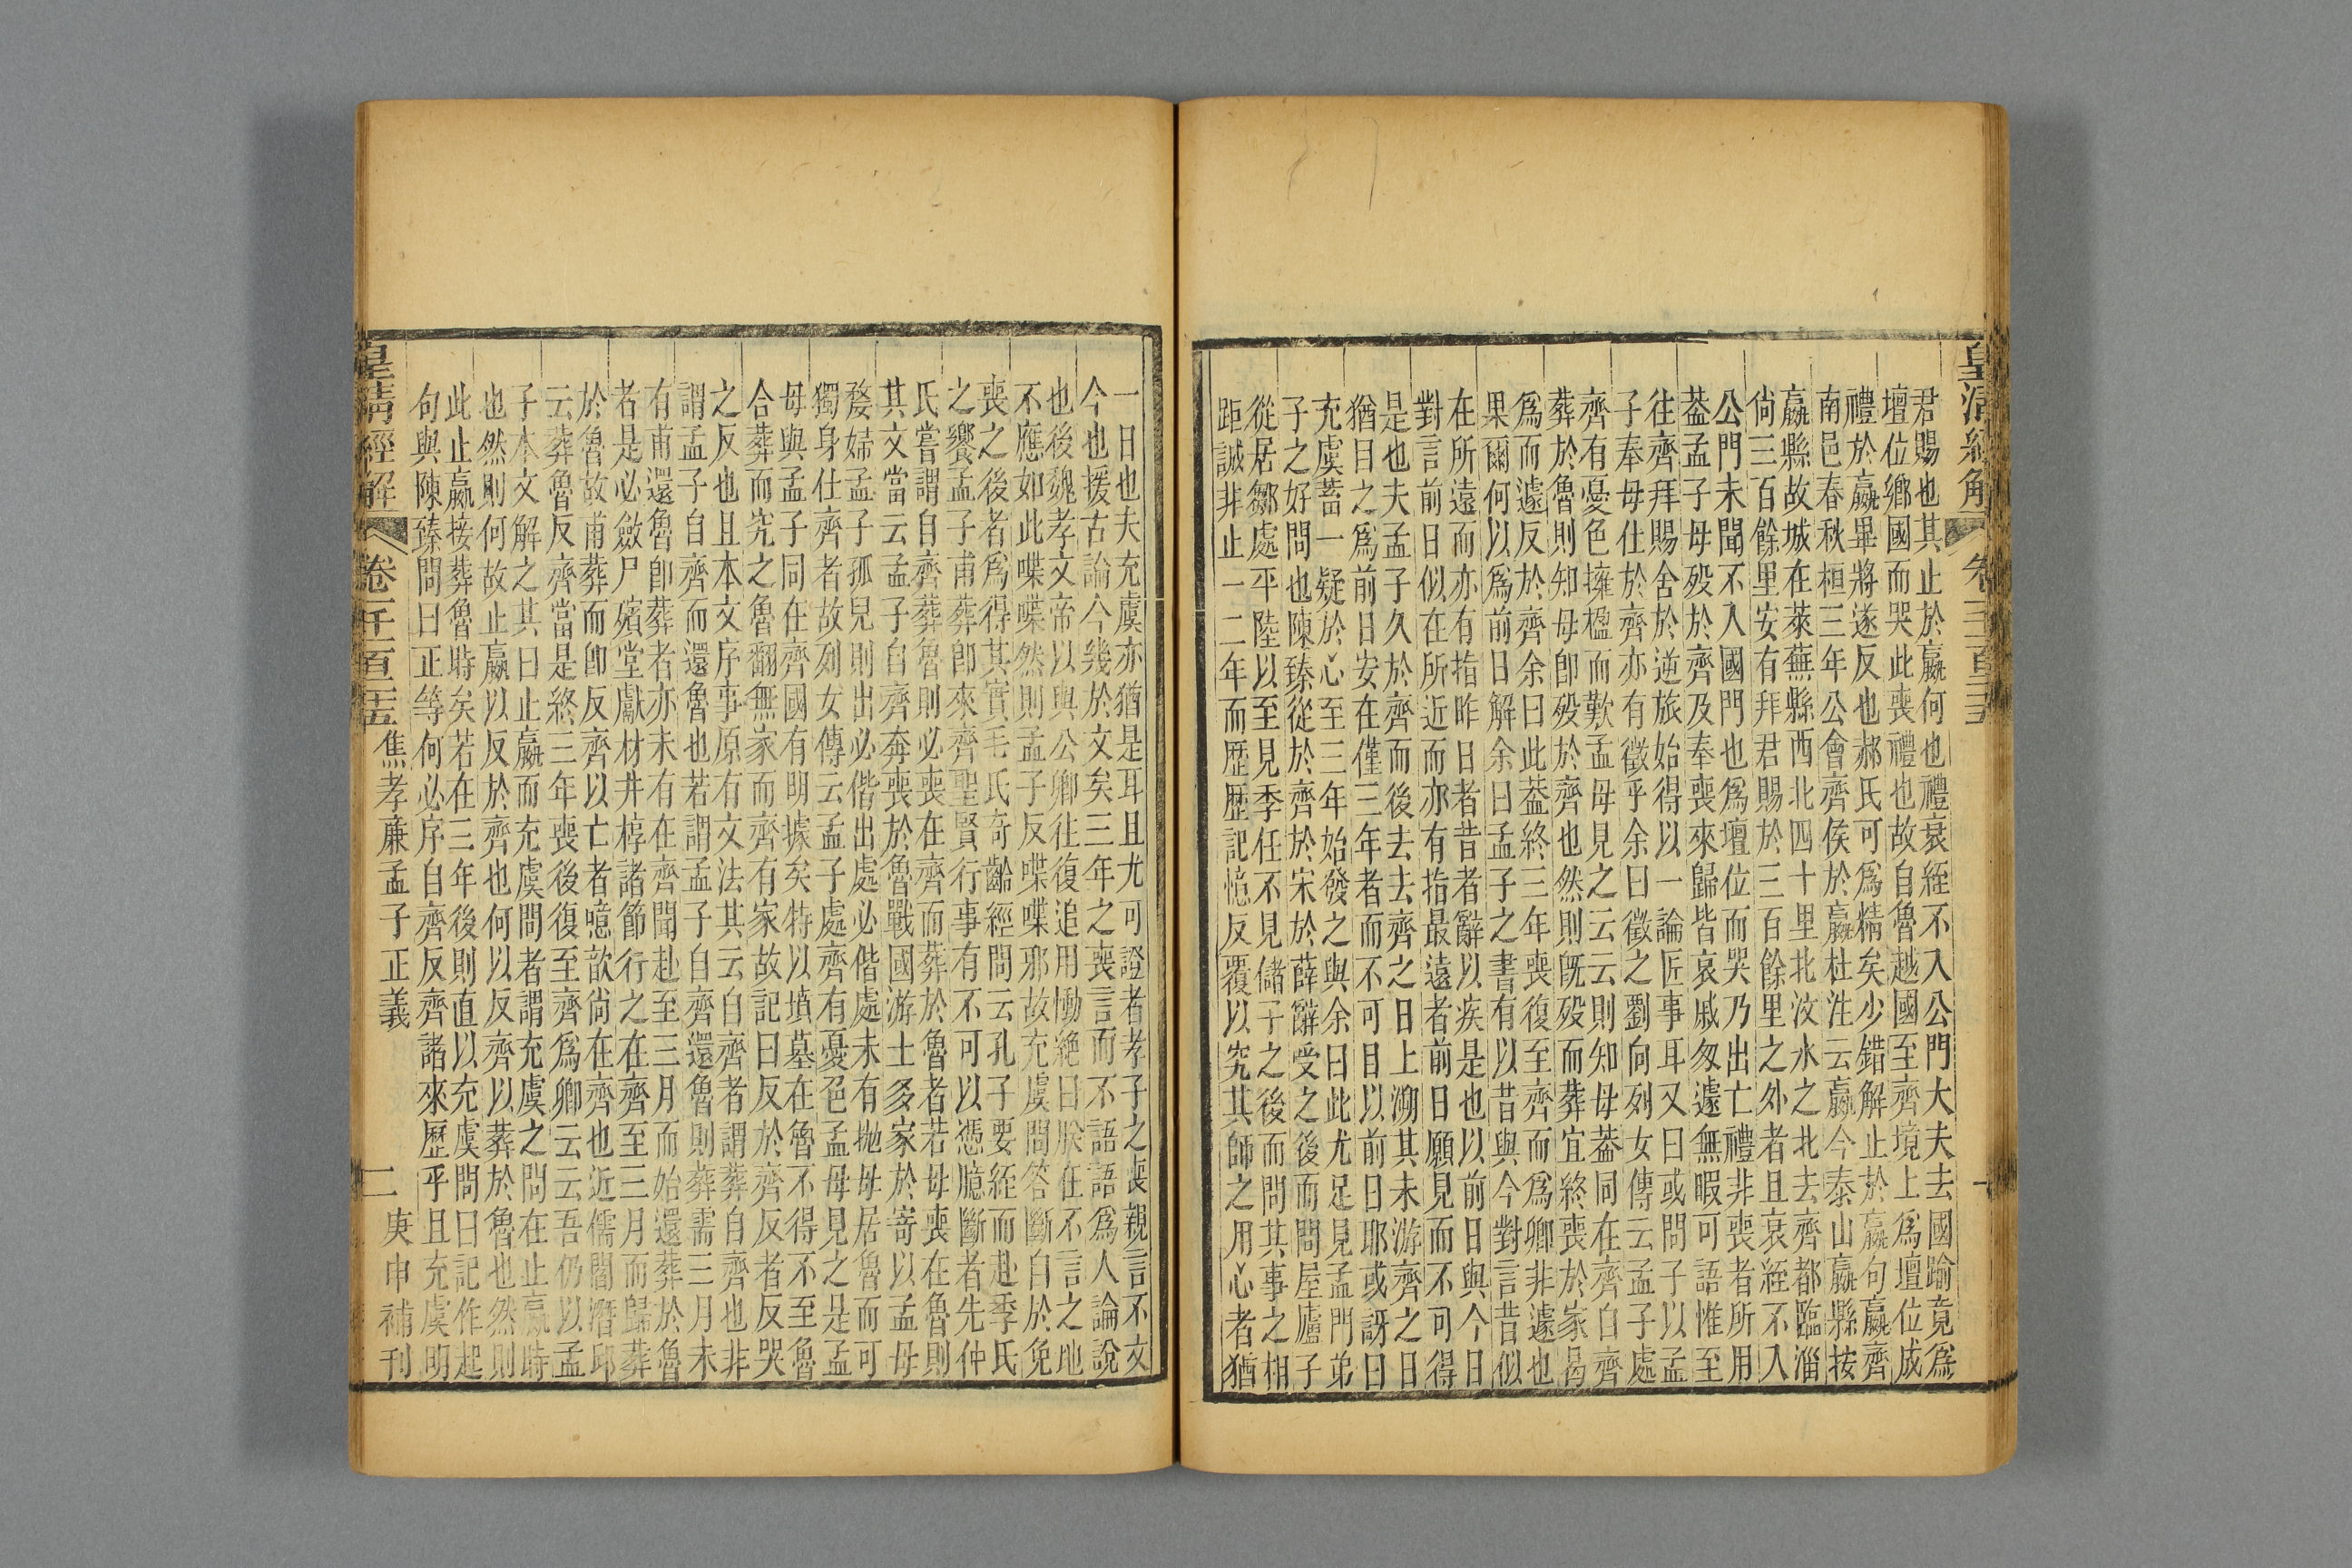 皇清經解
君賜也其止於嬴何也禮衰絰不入公門大夫去國踰竟爲
壇位鄉國而哭此喪禮也故自魯越國至齊境上爲壇位成
禮於嬴畢將遂反也郝氏可爲精矣少錯解止於嬴句嬴齊
南邑春秋桓三年公會齊侯於嬴杜注云嬴今泰山嬴縣按
嬴縣故城在萊蕪縣西北四十里北汶水之北去齊都臨淄
尙三百餘里安有拜君賜於三百餘里之外者且衰絰不入
公門未聞不入國門也爲壇位而哭乃出亡禮非喪者所用
葢孟子母歿於齊及奉喪來歸皆哀戚匆遽無暇可語惟至
往齊拜賜舍於逆旅始得以一論匠事耳又曰或問子以孟
子奉母仕於齊亦有徵乎余曰徵之劉向列女傳云孟子處
齊有憂色擁楹而歎孟母見之云云則知母葢同在齊自齊
葬於魯則知母卽歿於齊也然則旣歿而葬宜終喪於家曷
爲而遽反於齊余曰此葢終三年喪復至齊而爲卿非遽也
果爾何以爲前日解余曰孟子之書有以昔與今對言昔似
在所遠而亦有指昨日者昔者辭以疾是也以前日與今日
對言前日似在所近而亦有指最遠者前日願見而不可得
是也夫孟子久於齊而後去去齊之日上溯其未游齊之日
猶曰之爲前日安在僅三年者而不可目以前日耶或訝曰
充虞蓄一疑於心至三年始發之與余曰此尤足見孟門弟
子之好問也陳臻從於齊於宋於薛辭受之後而問屋廬子
從居鄒處平陸以至見季任不見儲子之後而問其事之相
距誠非止一二年而歷歷記憶反覆以究其師之用心者猶
一日也夫充虞亦猶是耳且尤可證者孝子之喪親言不文
今也援古論今幾於文矣三年之喪言而不語語爲人論說
也後魏孝文帝以與公卿往復追用慟絶曰朕在不言之地
不應如此喋喋然則孟子反喋喋邪故充虞問答斷自於免
喪之後者爲得其實毛氏奇齡經問云孔子要絰而赴季氏
之饗孟子甫葬卽來齊聖賢行事有不可以憑臆斷者先仲
氏嘗謂自齊葬魯則必喪在齊而葬於魯者若母喪在魯則
其文當云孟子自齊奔喪於魯戰國游士多家於寄以孟母
婺婦孟子孤兒則出必偕出處必偕處未有抛母居魯而可
獨身仕齊者故列女傳云孟子處齊有憂色孟母見之是孟
母與孟子同在齊國有明據矣特以墳墓在魯不得不至魯
合葬而究之魯翻無家而齊有家故記曰反於齊反者反哭
之反也且本文序事原有文法其云自齊者謂葬自齊也非
謂孟子自齊而還魯也若謂孟子自齊還魯則葬需三月未
有甫還魯卽葬者亦未有在齊聞赴至三月而始還葬於魯
者是必斂尸殯堂獻材井椁諸節行之在齊至三月而歸葬
於魯故甫葬而卽反齊以亡者噫歆尙在齊也近儒閻潛邱
云葬魯反齊當是終三年喪後復至齊爲卿云云吾仍以孟
子本文解之其曰止嬴而充虞問者謂充虞之問在止嬴時
也然則何故止嬴以反於齊也何以反齊以葬於魯也然則
此止嬴接葬魯時矣若在三年後則直以充虞問曰記作起
句與陳臻問曰正等何必序自齊反齊諸來歷乎且充虞明
皇清經解 卷一千一百二十五 焦孝廉孟子正義 二 庚申補刊